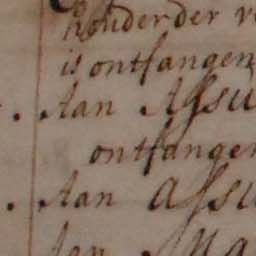 houder der
is ontfangen
. Aan Assu
ontfangen
. Aan Assu